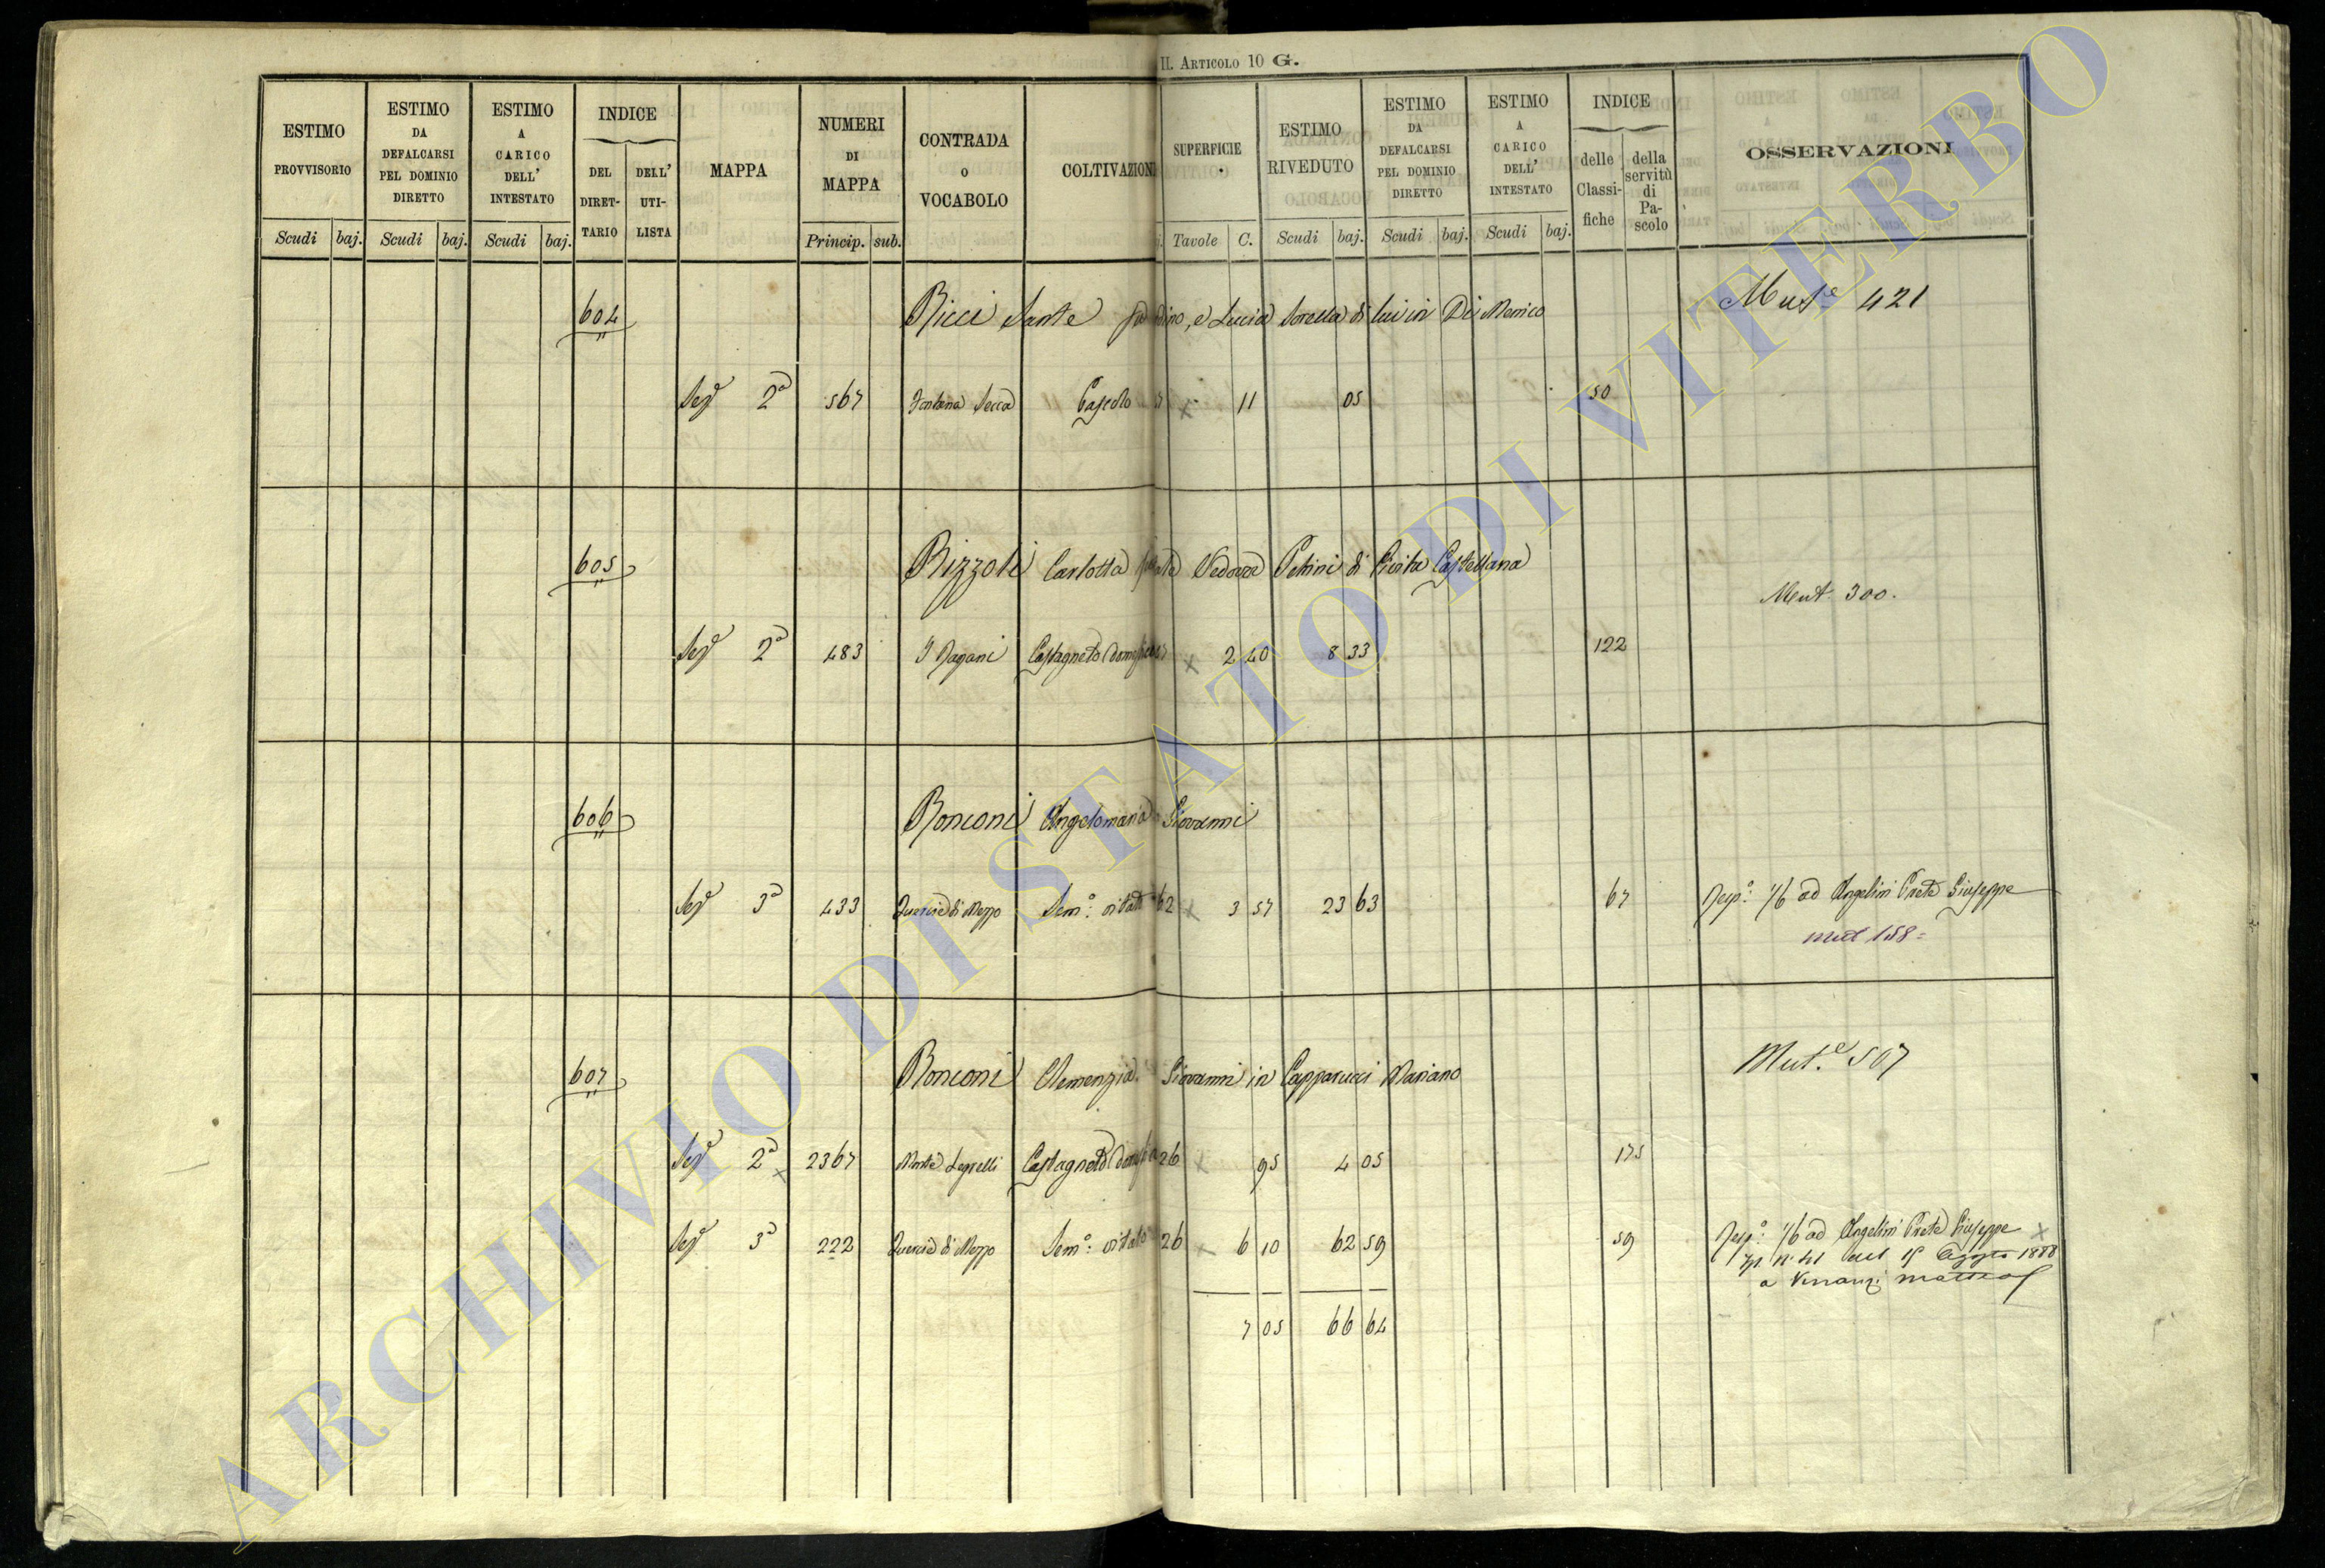 II. Articolo 10 G.
ESTIMO PROVVISORIO
Scudi baj.
ESTIMO DA DEFALCARSI PEL DOMINIO DIRETTO
Scudi baj.
ESTIMO A CARICO DELL' INTESTATO
Scudi baj.
INDICE
DEL DIRET-TARIO
DELL' UTI-LISTA
MAPPA
NUMERI DI MAPPA
Princip. sub.
CONTRADA o VOCABOLO
COLTIVAZION
SUPERFICIE
Tavole C.
ESTIMO RIVEDUTO
Scudi baj.
ESTIMO DA DEFALCARSI PEL DOMINIO DIRETTO
Scudi baj.
ESTIMO A CARICO DELL' INTESTATO
Scudi baj.
INDICE
delle Classi-fiche
della servitù di Pa-scolo
OSSERVAZIONI
604 Ricci Sante dino, e Lucia Sorella di lui in Di Menico Mut.e 421
Sez.e 2a 567 Fontana Secca Pascolo 11 05 50
605 Rizzoli Carlotta Vedova Petrini di Civita Castellana
Mut. 300.
Sez.e 2a 483 I Pagani Castagneto Domestico 2 40 8 33 122
606 Ronconi Angelomaria Giovanni
Sez.e 3a 433 Quercie di Mezzo Sem.o vitato 62 3 57 23 63 67 Resp.o 1/6 ad Angelini Prete Giuseppe
mut 158=
607 Ronconi Clemenzia Giovanni in Capparucci Mariano Mut.e 507
Sez.e 2a 2367 Monte 26 95 4 05 175
Sez.e 3a 222 Quercie di Mezzo Sem.o vitato 26 6 10 62 59 59 Resp.o 1/6 ad Angelini Prete Giuseppe
Agosto 1888
a Venanzi
7 05 66 64
ARCHIVIO DI STATO DI VITERBO